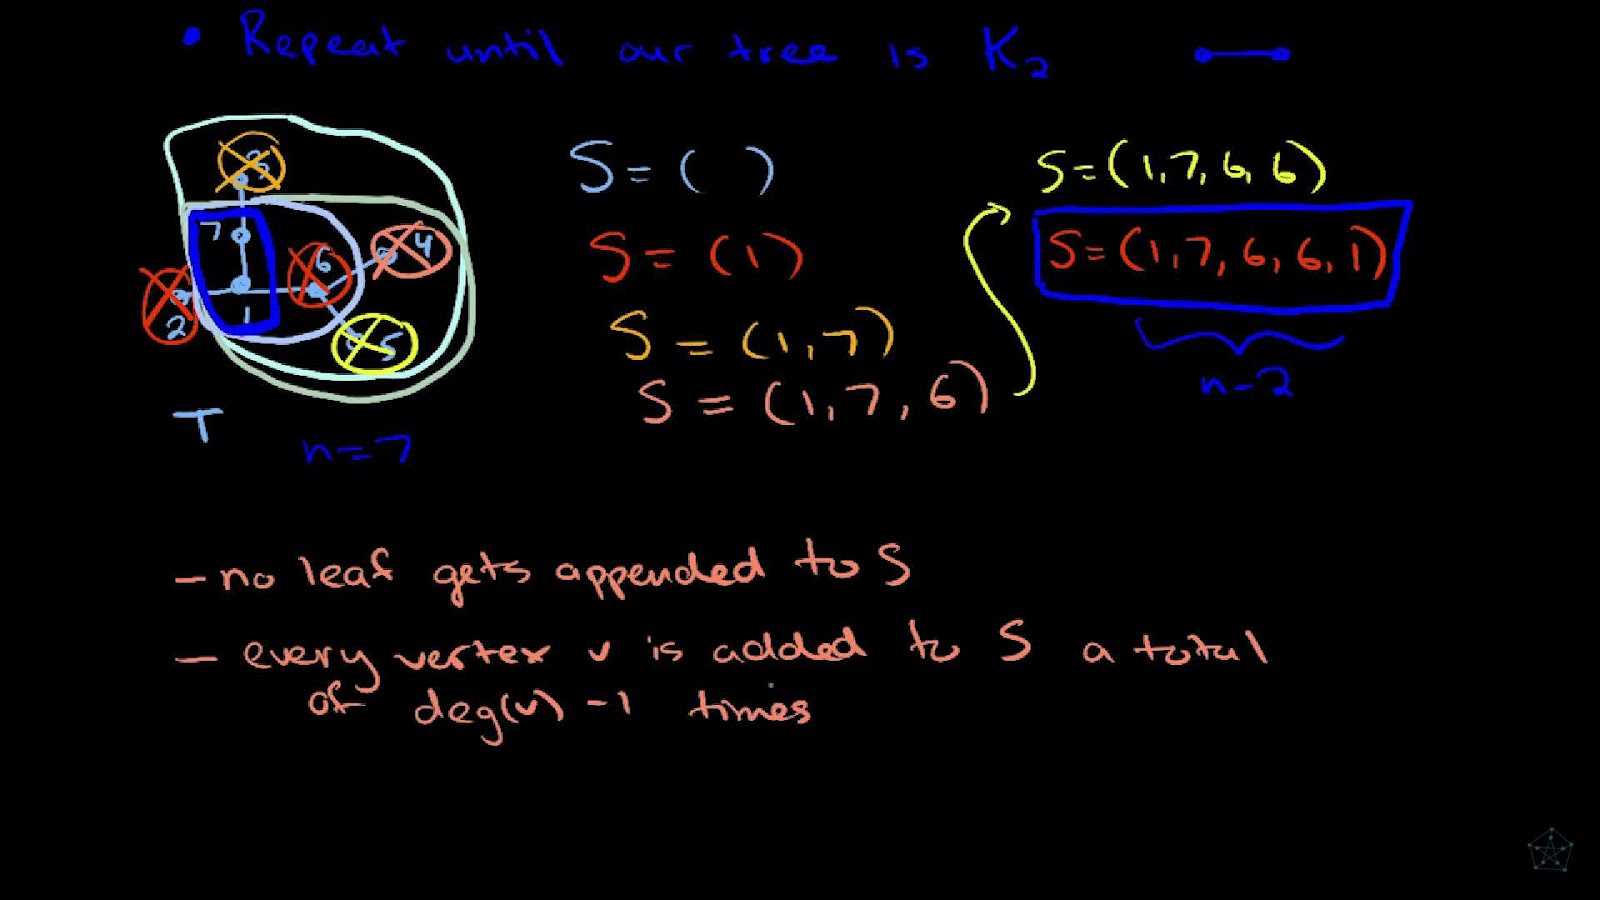 • Repeat until our tree is K₂
3
7
6
4
2
1
5
T
n=7
S=( )
S=(1)
S=(1,7)
S=(1,7,6)
S=(1,7,6,6)
S=(1,7,6,6,1)
n-2
- no leaf gets appended to S
- every vertex v is added to S a total
of deg(v)-1 times